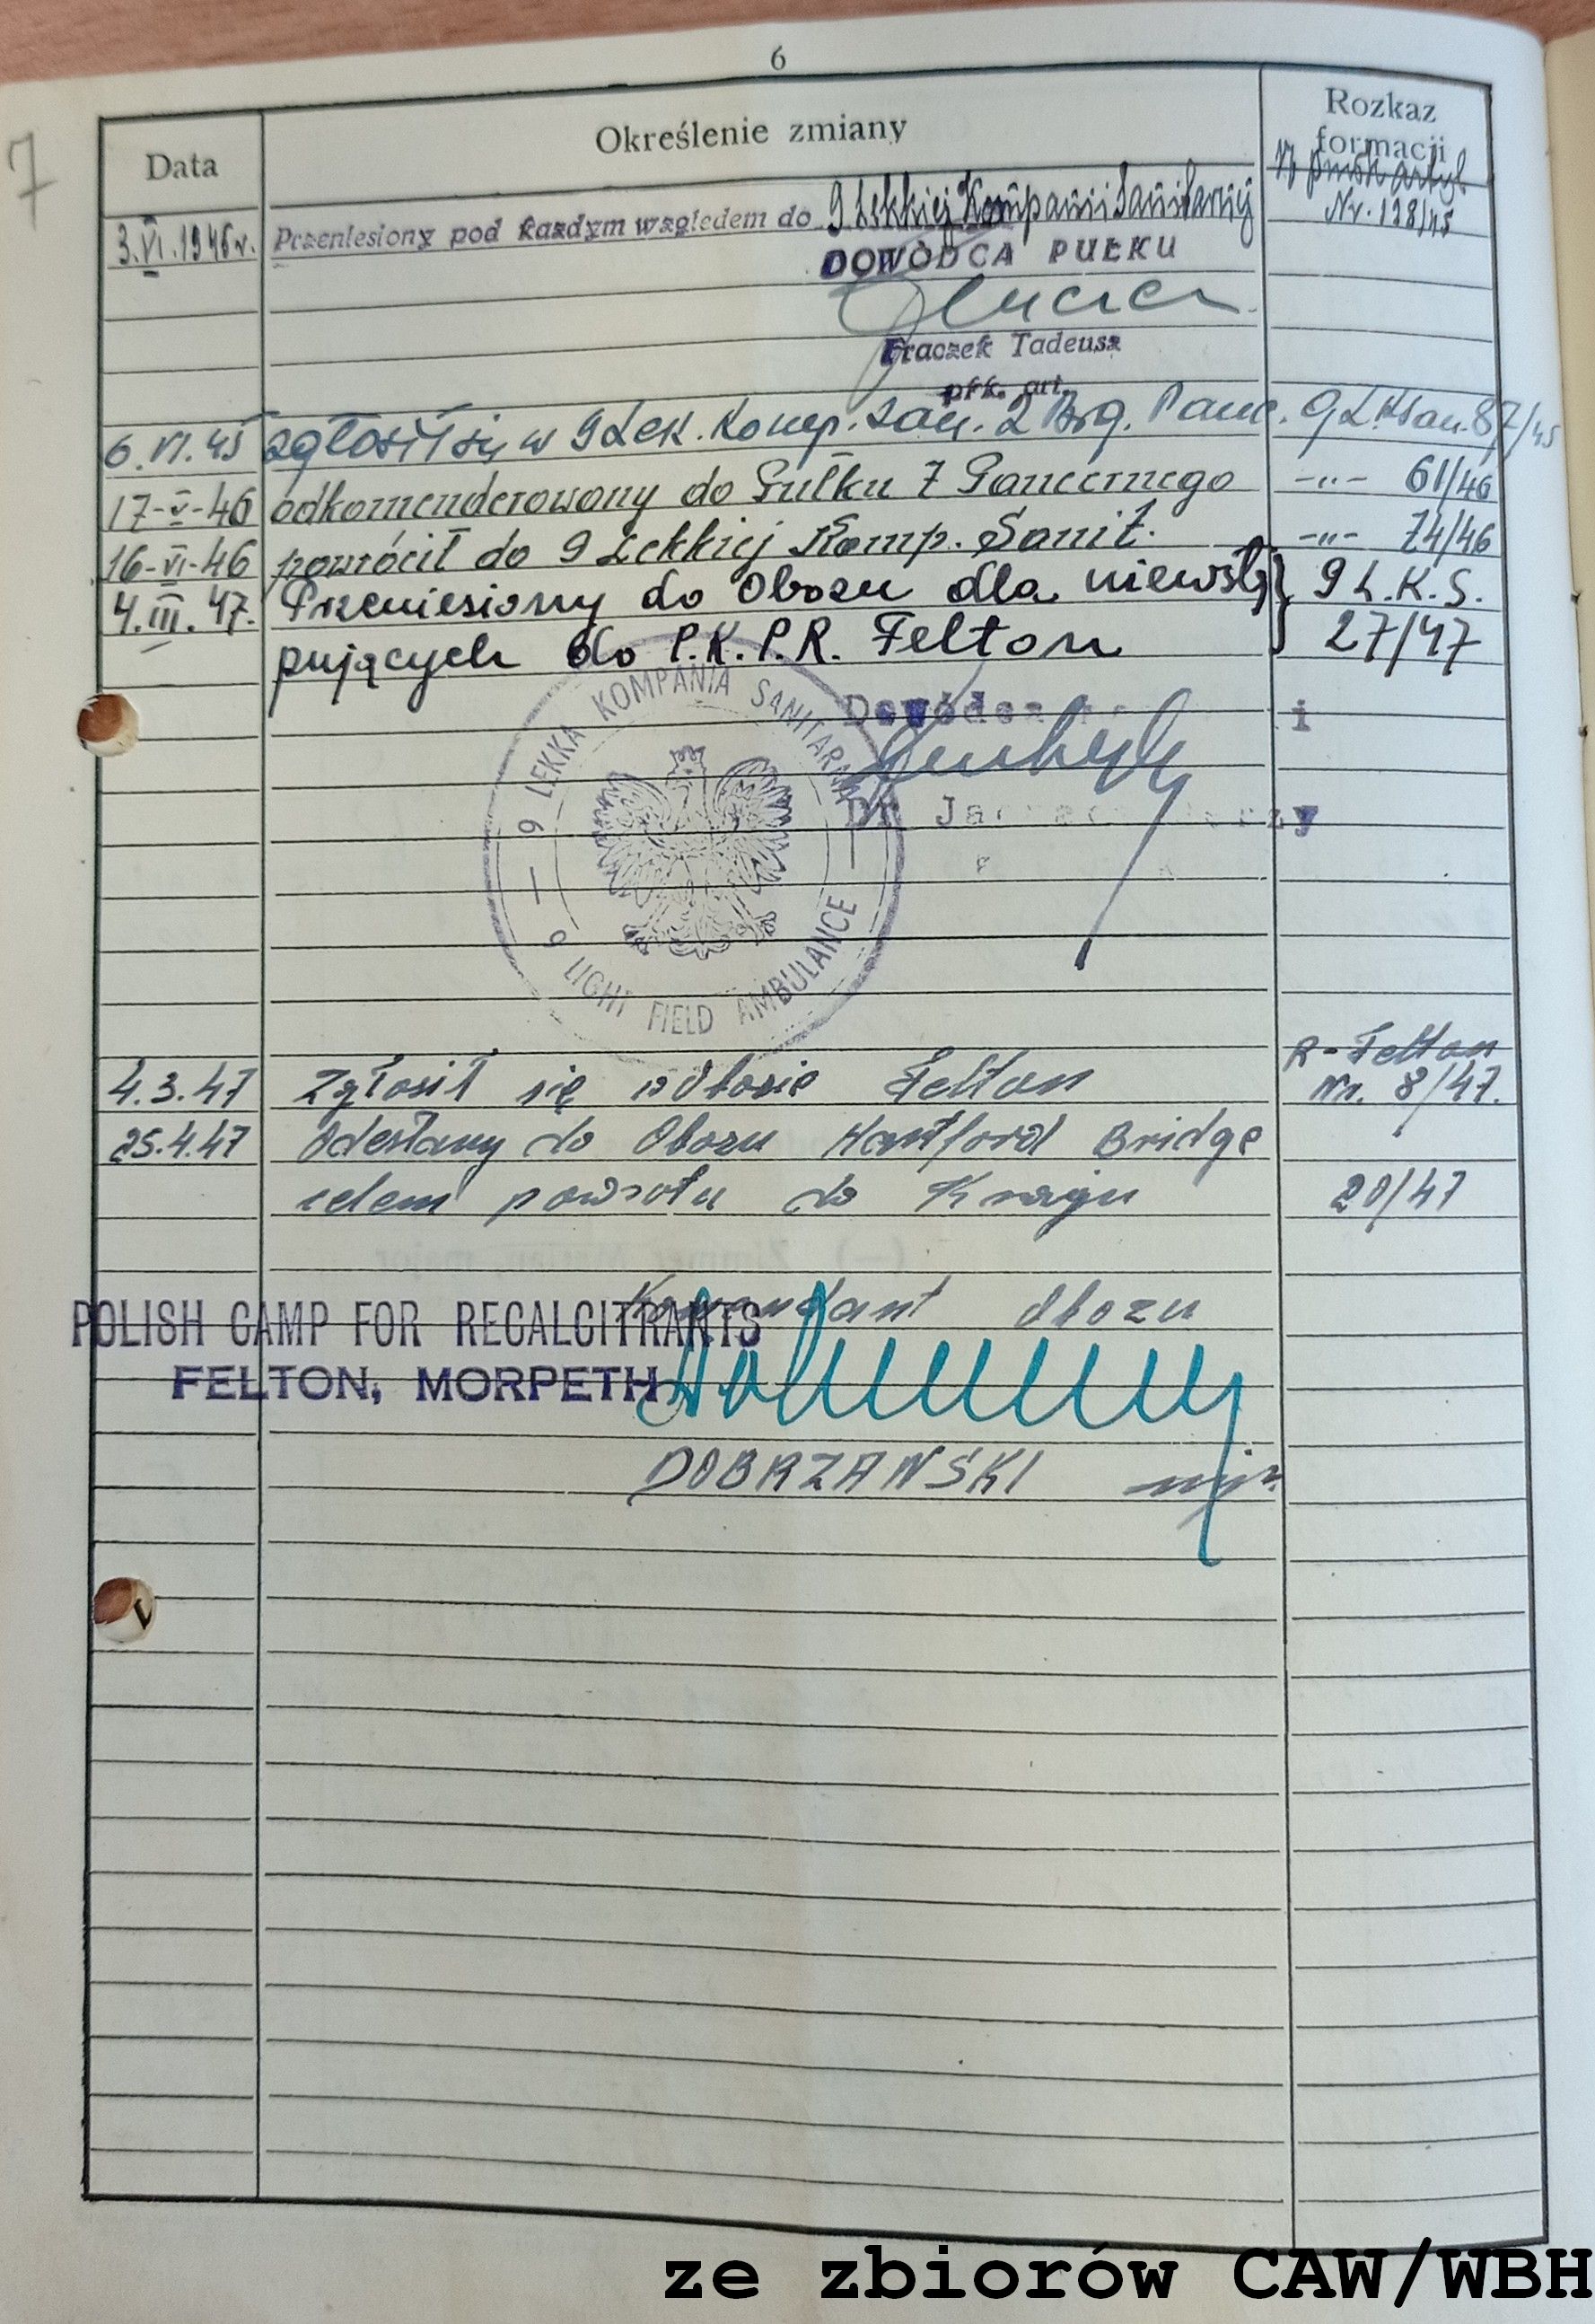 6
7
Data
Określenie zmiany
Rozkaz
formacji
artyl
3.VI.1945r. Przeniesiony pod każdym względem do 9 Lekkiej Kompanii Sanitarnej Nr. 128/45
DOWÓDCA PUŁKU
Frączek Tadeusz
płk. art.
6.VI.45 zgłosił się w 9 Lek. Komp. San. 2 Bryg. Panc. 9 L.K.San. 87/45
17-V-46 odkomenderowany do Pułku 7 Pancernego -"- 61/46
16-VI-46 powrócił do 9 Lekkiej Komp. Sanit. -"- 74/46
4.III.47. Przeniesiony do Obozu dla niewstę} 9 L.K.S.
pujących do P.K.P.R. Felton 27/47
9 LEKKA KOMPANIA SANITARNA
9 LIGHT FIELD AMBULANCE
Dowódca
Dr
R-Felton
4.3.47 Zgłosił się w Obozie Felton Nr. 8/47.
25.4.47 Odesłany do Obozu Hartford Bridge
celem powrotu do Kraju 20/47
Komendant Obozu
POLISH CAMP FOR RECALCITRANTS
FELTON, MORPETH
DOBRZAŃSKI mjr.
ze zbiorów CAW/WBH